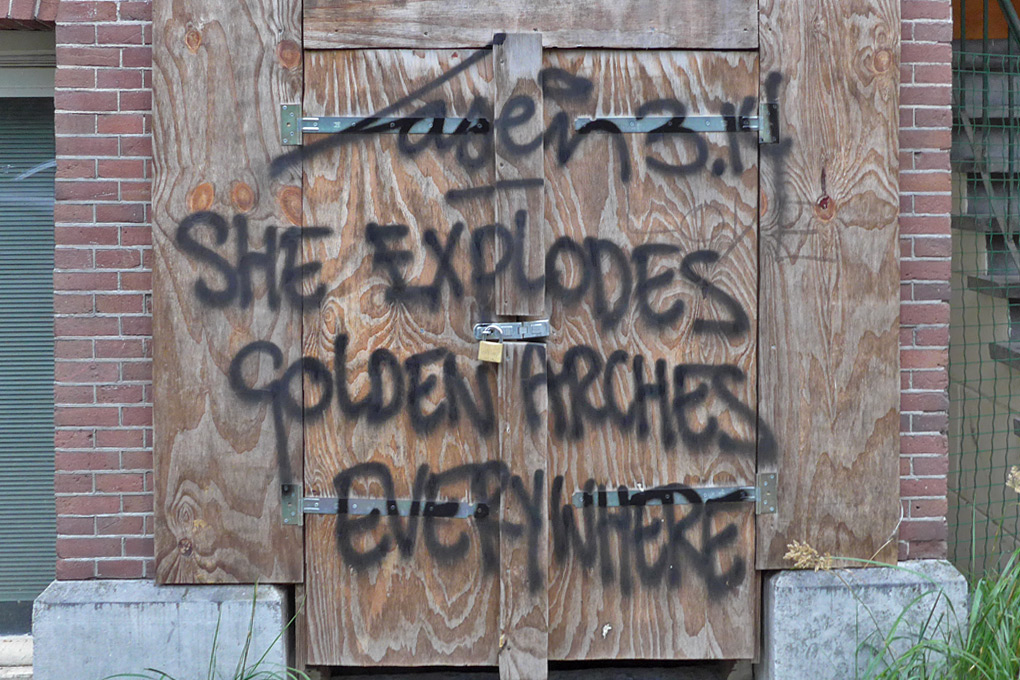 Laser 3.14
SHE EXPLODES
GOLDEN ARCHES
EVERYWHERE